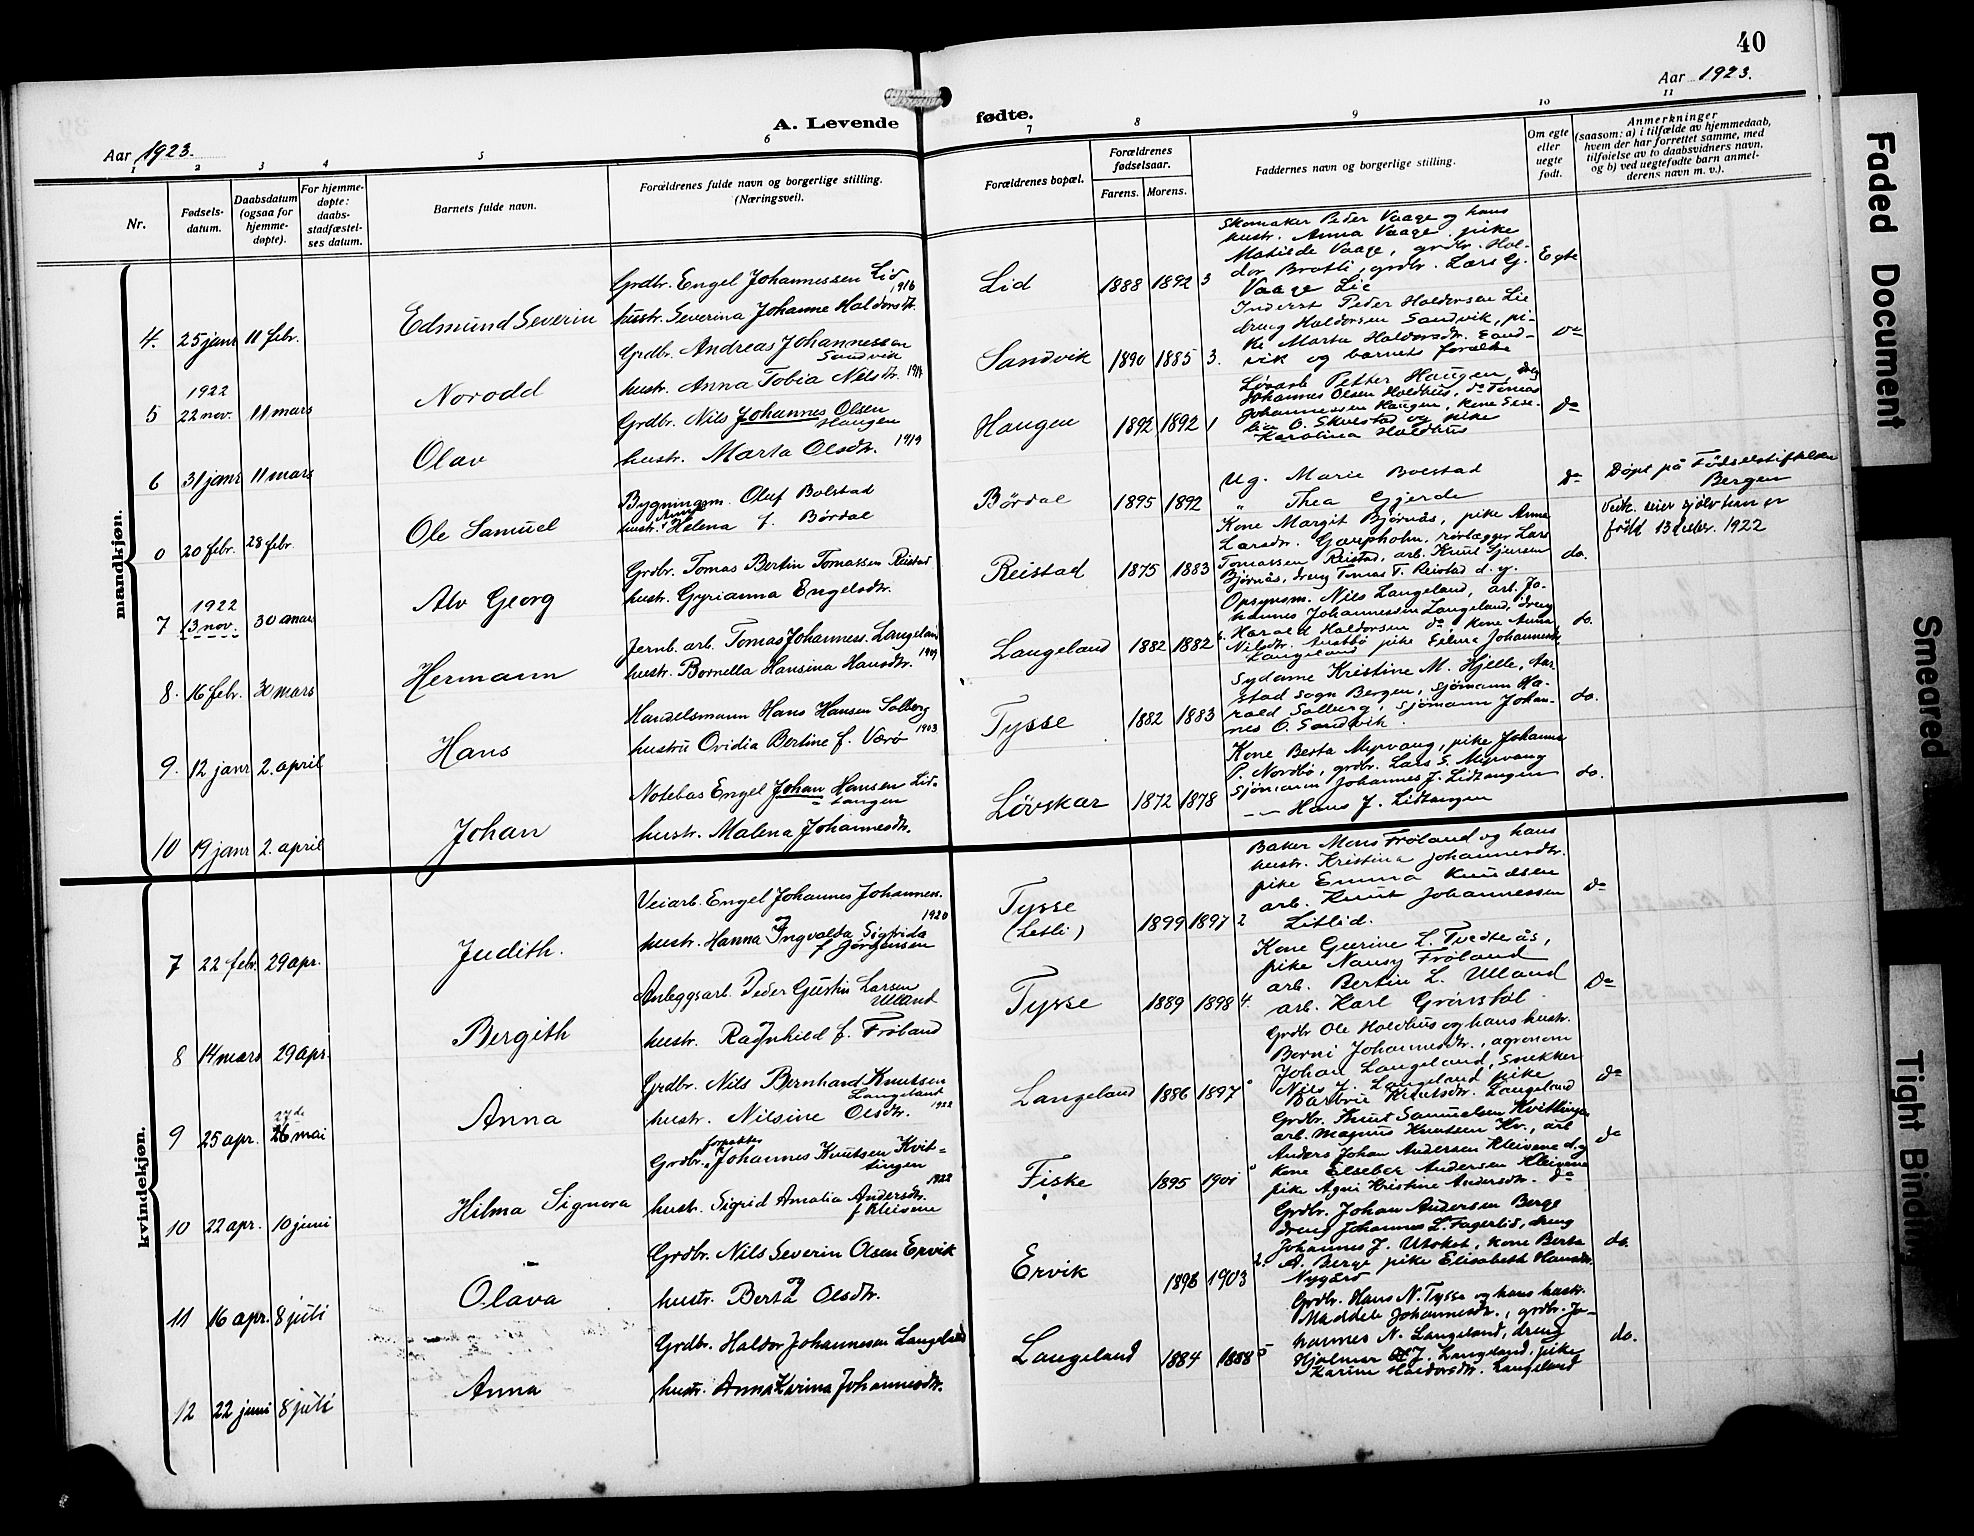 40
Aar 1923.
Aar 1923.
A. Levende fødte.
1 2 3 4 5 6 7 8 9 10 11
Nr.
Fødsels-
datum.
Daabsdatum
(ogsaa for
hjemme-
døpte).
For hjemme-
døpte:
daabs-
stadfæstel-
ses datum.
Barnets fulde navn.
Forældrenes fulde navn og borgerlige stilling.
(Næringsvei).
Forældrenes bopæl.
Forældrenes
fødselsaar.
Farens. Morens.
Faddernes navn og borgerlige stilling.
Om egte
eller
uegte
født.
Anmerkninger
(saasom: a) i tilfælde av hjemmedaab,
hvem der har forrettet samme, med
tilføielse av to daabsvidners navn,
og b) ved uegtefødte barn anmel-
derens navn m. v.).
mandkjøn.
4. 25 janr 11 febr. Edmund Severin
Grdbr. Engel Johannessen Lid
1916
hustr. Severina Johanne Haldorsdtr.
Lid 1888 1892 3
Skomaker Peder Vaage og hans
hustr. Anna Vaage, pike
Matilde Vaage, grdbr. Hal-
dor Bratli, grdbr. Lars G.
Vaage Lie
Egte
1922
5 22 nov. 11 mars Norodd
Grdbr. Andreas Johannessen
Sandvik
hustr. Anna Tobia Nilsdtr. 1914
Sandvik 1890 1885 3.
Inderst Peder Haldorsen Lie
dreng Haldorsen Sandvik, pi-
ke Marta Haldorsdtr. Sand-
vik og barnets forældre
do
6 31 janr 11 mars Olav
Grdbr. Nils Johannes Olsen
Haugen
hustr. Marta Olsdtr. 1919
Haugen 1892 1892 1
Løsarb. Petter Haugen, dreng
Johannes Olsen Holdhus, do Tomas
Johannessen Haugen, kone Sese-
lia O. Skeistad og pike
Karolina Holdhus
do
0 20 febr. 28 febr. Ole Samuel
Bygningsm. Oluf Bolstad
hustr. Anna Helena f. Børdal
Børdal 1895 1892
Ug. Marie Bolstad
" Thea Gjerde
do
Døpt på Fødselstiftelsen
Bergen
1922
7 13 nov. 30 mars Alv Georg
Grdbr. Tomas Bertin Tomassen Reistad
hustr. Gyrianna Engelsdtr.
Reistad 1875 1883
Kone Margit Bjørnås, pike Anna
Larsdtr. Gaupholm, rørlægger Lars
Tomassen Reistad, arb. Knut
Bjørnås, dreng Tomas T. Reistad d. y.
do.
sier sjølv han er
født 13 1922
8. 16 febr. 30 mars Hermann
Jernb. arb. Tomas Johanness. Langeland
1909
hustr. Bornella Hansina Hansdtr.
Langeland 1882 1882
Opsynsm. Nils Langeland, arb. Jo-
hannes Johannessen Langeland, dreng
Harald Haldorsen do, kone Anna
Nilsdtr. pike Selma Johannesdtr.
Langeland
do.
9. 12 janr 2. april Hans
Handelsmann Hans Hansen Solberg
1903
hustru Ovidia Bertine f. Værø
Tysse 1882 1883
Sydame Kristine M. Hjelle, Aar-
stad sogn Bergen, sjømann Ha-
rald Solberg, sjømann Johan-
nes O. Sandvik.
do.
10 19 janr 2. april Johan
Notebas Engel Johan Hansen Lid-
tangen
hustr. Malena Johannesdtr.
Løvskar 1872 1878
Kone Berta Myrvang, pike Johanna
P. Nordbø, grdbr. Lars S. Myrvang
Sjømann Johannes J. Lidtangen
— Hans J. Lidtangen
do.
kvindekjøn.
7 22 febr. 29 apr. Judith.
Veiarb. Engel Johannes Johanness.
1920
hustr. Hanna Ingvalda Sigfrida
f. Jørgensen
Tysse
(Letli)
1899 1897 2
Baker Mons Frøland og hans
hustr. Kristina Johannesdtr.
pike Emma Knudsen
arb. Knut Johannessen
Litlid.
do
8 14 mars 29 apr. Bergith
Anleggsarb. Peder Gustin Larsen
Ulland
hustr. Ragnhild f. Frøland
Tysse 1889 1898 4.
Kone Gurine L. Tvedterås,
pike Nansy Frøland
arb. Bertin L. Ulland
arb. Karl Grønstøl.
Do
9 25 apr. 27de 26 mai Anna
Grdbr. Nils Bernhard Knutsen
Langeland
hustr. Nilsine Olsdtr. 1922
Langeland 1886 1897 0
Grdbr Ole Holdhus og hans hustr.
Berni Johannesdtr., agronom
Johan Langeland, snekker
Nils J. Langeland pike
Barbru Knutsdtr. Langeland
do
10 22 apr. 10 juni Hilma Signora
Grdbr. forpakter Johannes Knutsen Kvit-
tingen
1922
hustr. Sigrid Amalia Andersdtr.
f. Kleivene
Fiske 1895 1901 0
Grdbr. Knut Samuelsen Kvittingen
arb. Magnus Knutsen Kv., arb
Anders Johan Andersen Kleivene d.y
kone Elseber Andersen Kleivene
pike Agni Kristine Andersdtr. do
do
11 16 apr. 8 juli Olava
Grdbr. Nils Severin Olsen Ervik
hustr. Berta Olsdtr.
Ervik 1896 1903 2.
Grdbr. Johan Andersen Berge
dreng Johannes L. Fagerlid, dreng
Johannes J. Utskot, kone Berta
A. Berge pike Elisabeth Hansdtr.
Nygård
do.
12 22 juni 8 juli Anna
Grdbr. Haldor Johannessen Langeland
hustr. Anna Karina Johannesdtr.
Langeland 1884 1888 5
Grdbr. Hans N. Tysse og hans hustr.
Maddele Johannesdtr., grdbr. Jo-
hannes N. Langeland, dreng
Hjalmar J. Langeland, pike
Karine Haldorsdtr. Langeland
do.
Faded Document
Smeared
Tight Binding